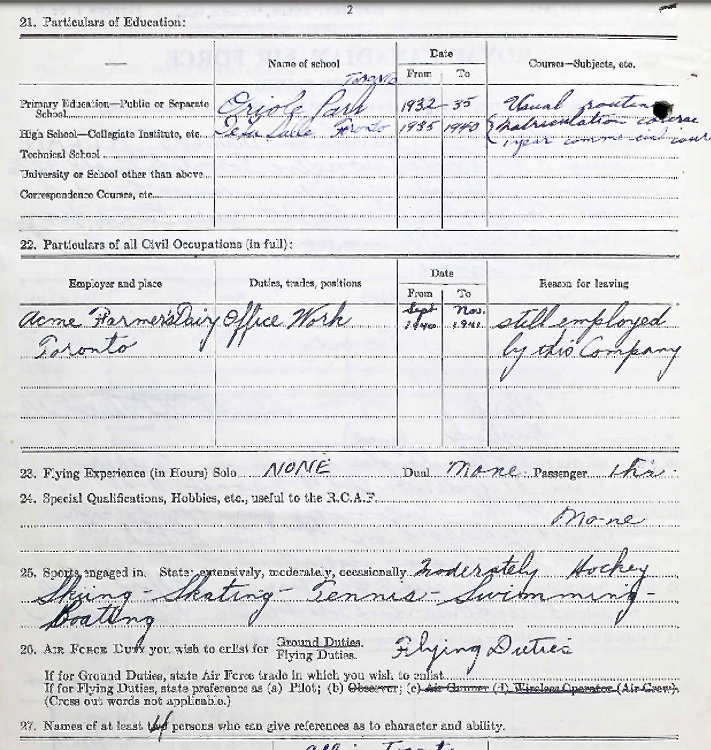 2
21. Particulars of Education:
Name of school
Date
From
To
Courses—Subjects, etc.
Toronto
Primary Education—Public or Separate School
Oriole Park
1932-35
Usual routine
High School—Collegiate Institute, etc.
De La Salle Toronto
1935
1940
Matriculation course
1 year commercial course
Technical School
University or School other than above
Correspondence Courses, etc.
22. Particulars of all Civil Occupations (in full):
Employer and place
Duties, trades, positions
Date
From
To
Reason for leaving
Acme Farmer's Dairy
Office Work
Sept 1940
Nov. 1941
still employed
Toronto
by this Company
23. Flying Experience (in Hours) Solo NONE Dual None Passenger 1 hr.
24. Special Qualifications, Hobbies, etc., useful to the R.C.A.F.
None
25. Sports engaged in. State: extensively, moderately, occasionally Moderately Hockey
Skiing - Skating - Tennis - Swimming -
Boating
26. AIR FORCE DUTY you wish to enlist for Ground Duties. Flying Duties. Flying Duties
If for Ground Duties, state Air Force trade in which you wish to enlist
If for Flying Duties, state preference as (a) Pilot; (b) Observer; (c) Air Gunner (d) Wireless Operator (Air Crew).
(Cross out words not applicable.)
27. Names of at least persons who can give references as to character and ability.